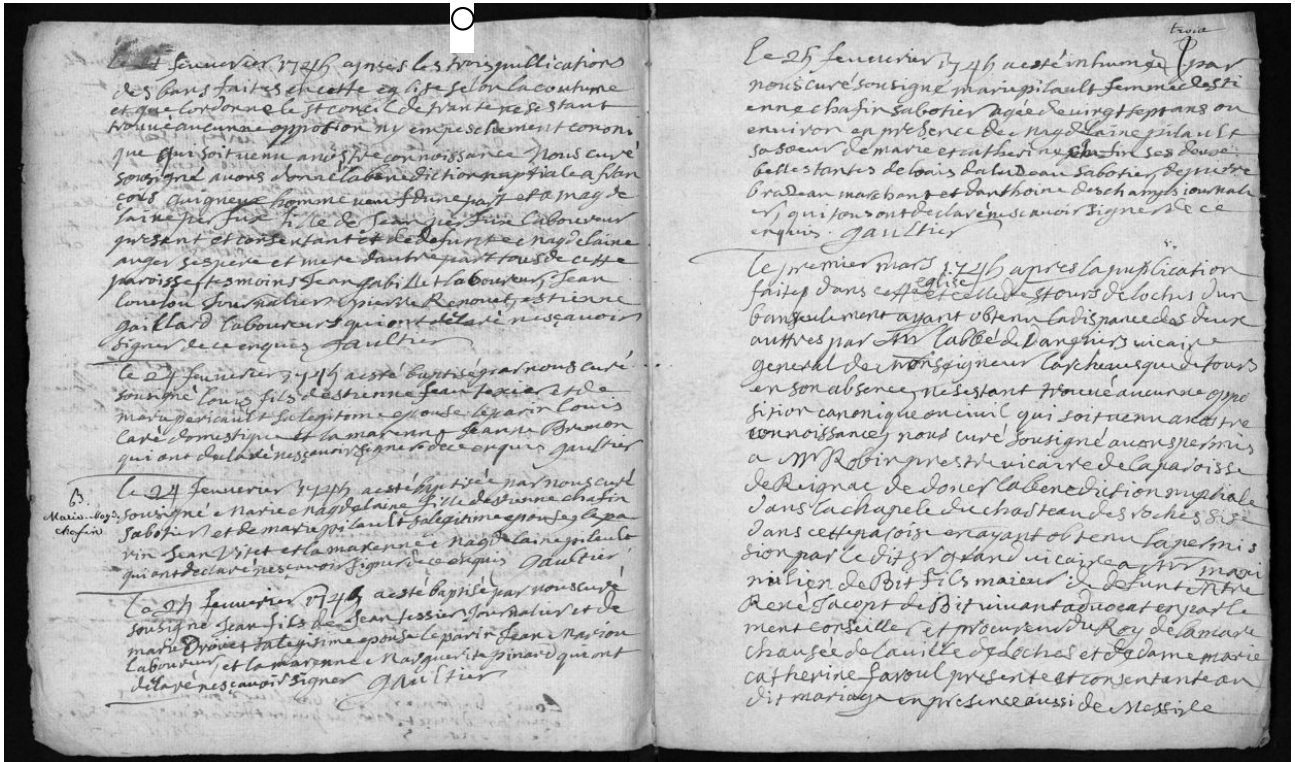 le feuverier 1745 apres les trois publications
des bans faites en cette eglise selon la coutume
et que lordonne le st conseil de trante ne sestant
trouvé aucunne oppotion ny empeschement cononi
que qui soit venu a nostre connoissance Nous curé
sousigné avons donné la benediction nuptiale a fran
çois homme veuf dune part et a magde
laine fille de Jean laboureur
present et consentant et de defunte Magdelaine
auger ses pere et mere dautre part tous de cette
paroisse tesmoins Jean laboureur, Jean
Journalier pierre Renouet, estienne
gaillard laboureurs qui ont déclaré ne sçavoir
signer de ce enquis gaultier
le 24 feuverier 1745 a esté baptisé par nous curé
sousigné Louis fils destienne Jean texier et de
marie pericault sa legitime epouse le parin Louis
claré domestique et la marenne Jeanne Bremon
qui ont declaré ne sçavoir signer de ce enquis gaultier
B
Marie-Magd.
chafin
le 24 feuverier 1745 a esté baptisée par nous curé
sousigné Marie Magdelaine fille destienne chafin
sabotier et de marie pilault sa legitime epouse le pa
rin Jean Vitet et la marenne Magdelaine pilault
qui ont declaré ne sçavoir signer de ce enquis gaultier
le 25 feuverier 1745 a esté baptisé par nous curé
sousigné Jean fils de Jean tessier Journalier et de
marie Drouet sa legitime epouse le parin Jean Marion
laboureur, et la marenne Marguerite pinard qui ont
déclaré ne sçavoir signer gaultier
trois
le 25 feuverier 1745 a esté inhumée par
nous curé sousigné marie pilault femme desti
enne chafin sabotier agée de vingt sept ans ou
environ en presence de Magdelaine pilault
sa soeur de marie et catherine chafin ses deux
belles tantes de louis daluzeau sabotier, de pierre
brazeau marchant et danthoine deschamps journali
er, qui tous ont déclaré ne sçavoir signer de ce
enquis. gaultier
le premier mars 1745 après la publication
faites dans cette eglise et celle de st ours de loches dun
ban seulement ayant obtenu la dispance des deux
auttres par Mr l'abbé de vicaire
general de monseigneur larchevesque de tours
en son absence, ne sestant trouvé aucunne oppo
sition canonique ou civil qui soit venu a nostre
connoissance, nous curé sousigné avons permis
a Mr Robin prestre vicaire de la paroisse
de Reignac de doner la benediction nuptiale
dans la chapele du chasteau des roches sise
dans cette paroise en ayant obtenu la permis
sion par le dit sr grand vicaire a Mr maxi
milien de Bit fils majeur de defunt Mre
René Jacopt de Bit vivant advocat en parle
ment conseiller et procureur du Roy de la mare
chausée de la ville de loches et de dame marie
catherine faroul presente et consentante au
dit mariage en presence aussi de Messire